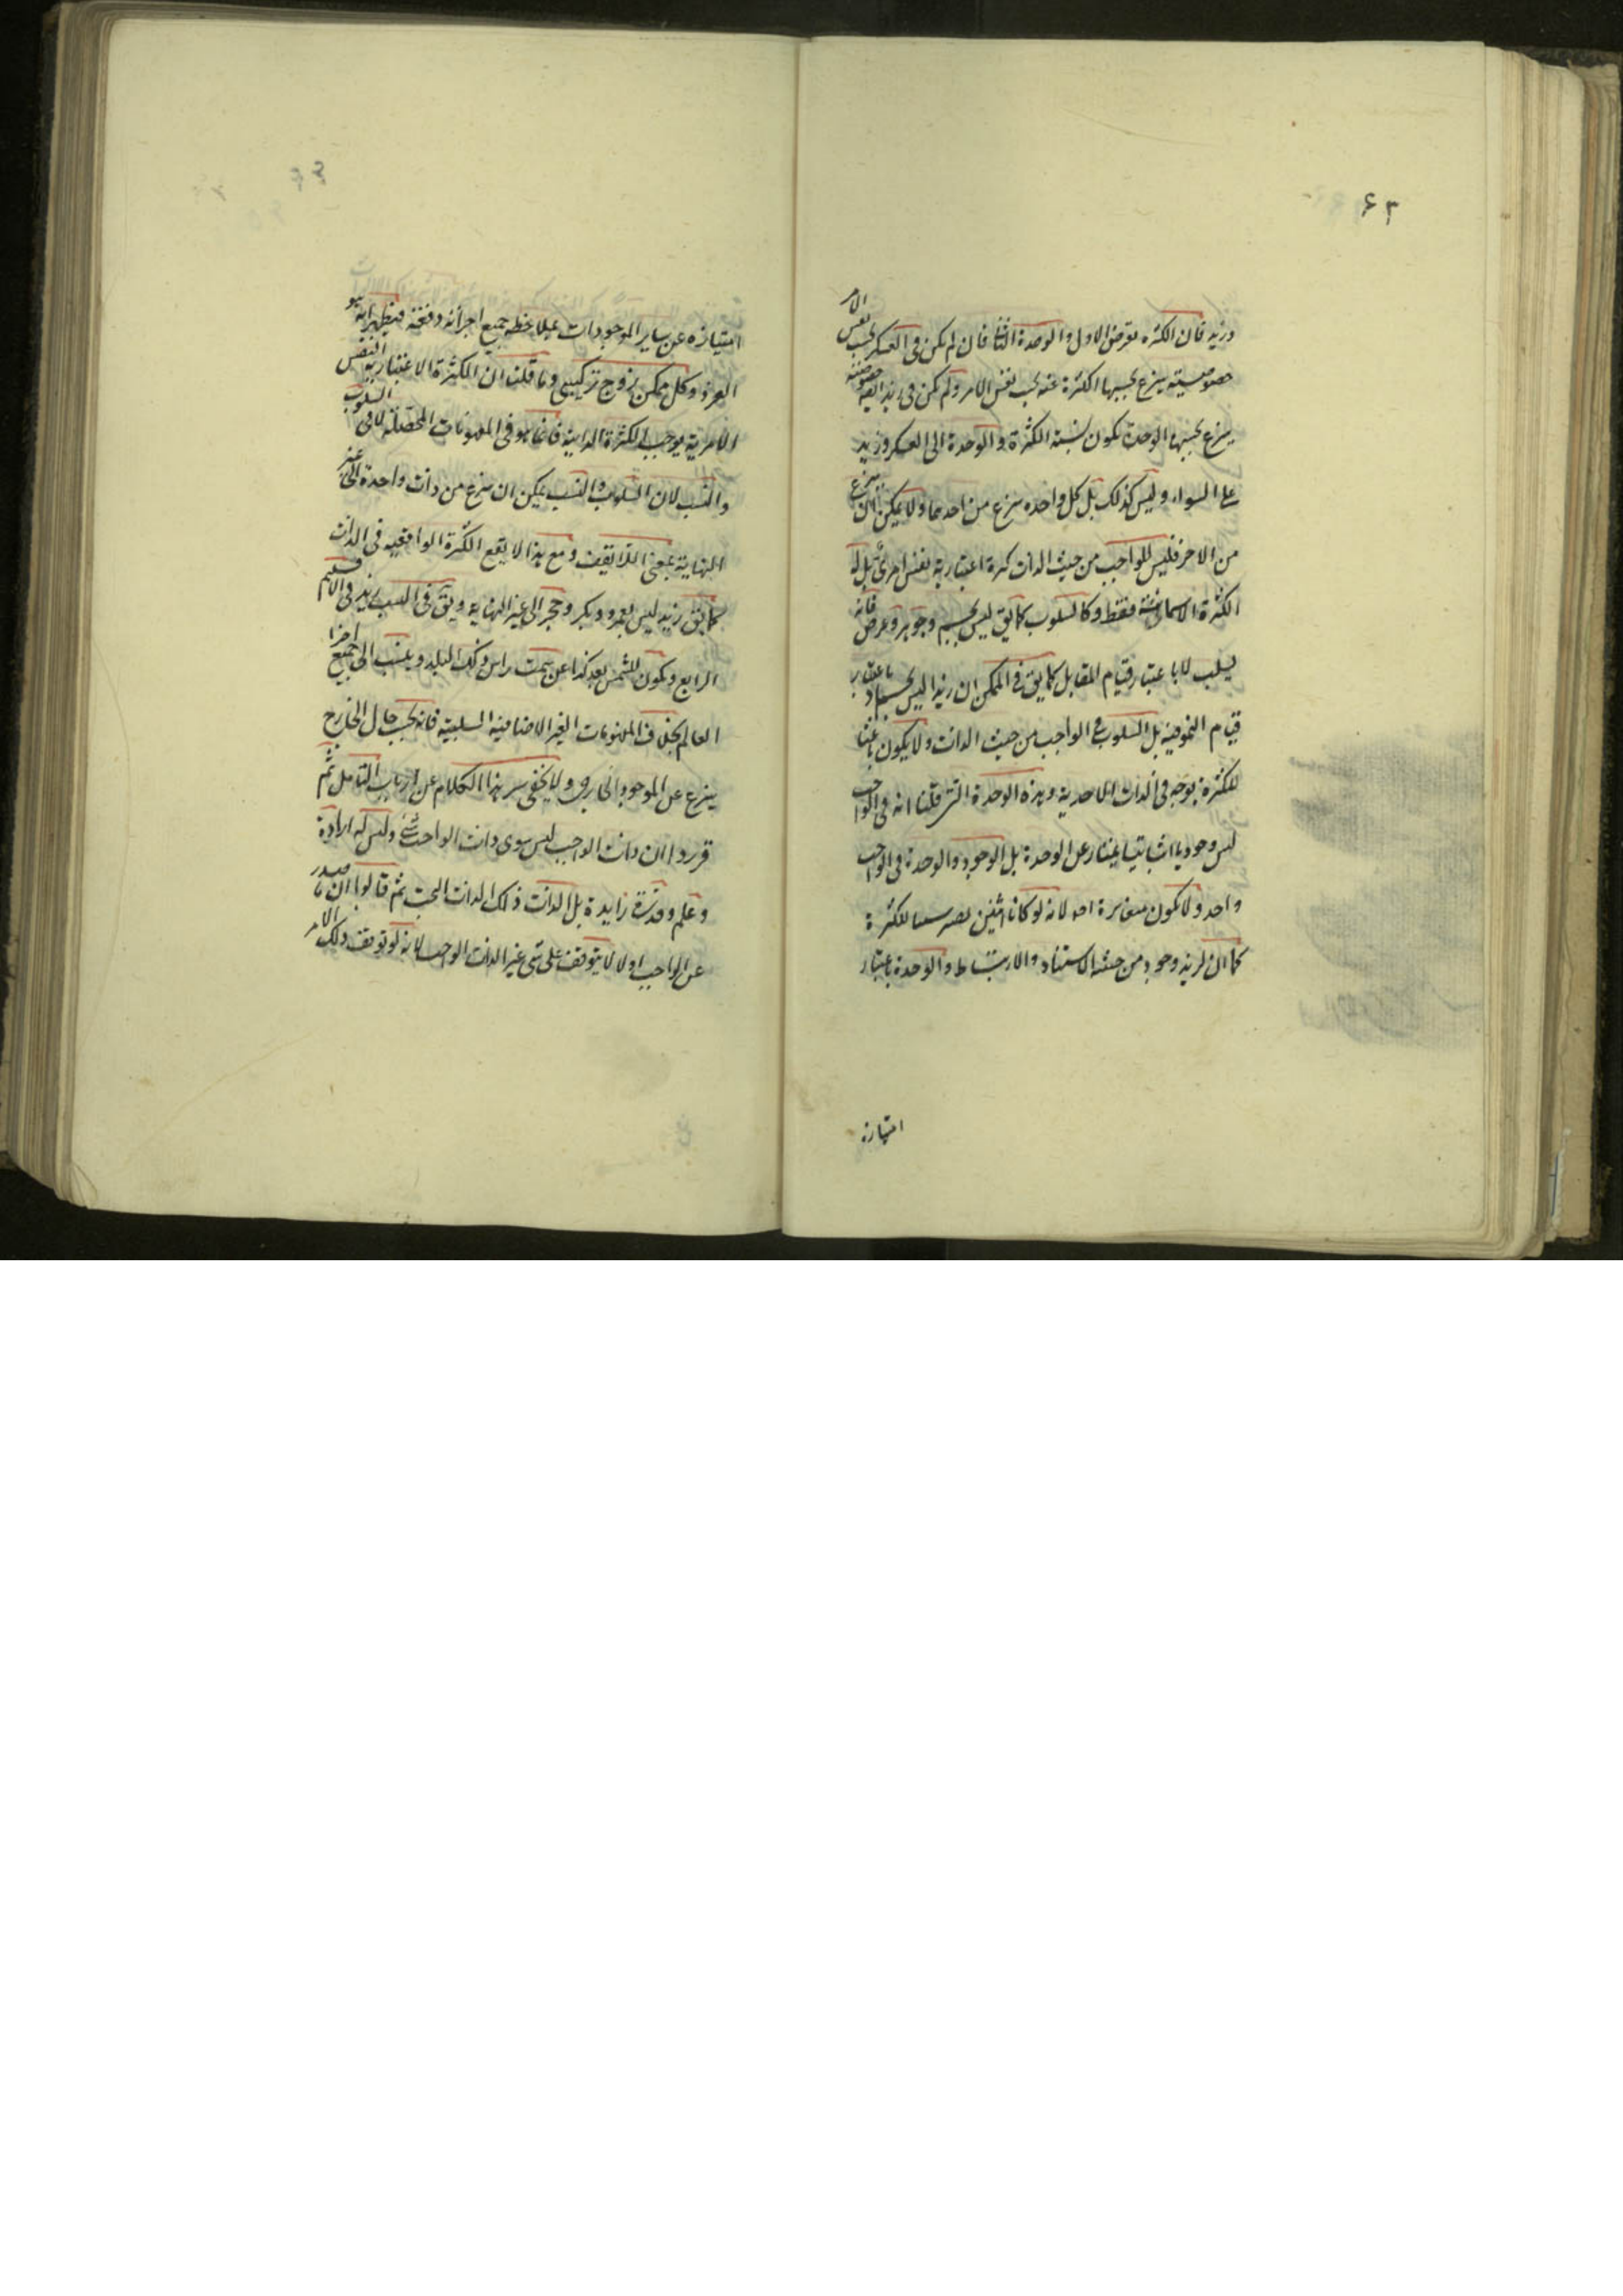 ٦٣
وزيد فان الكثرة تعرض الاول والوحدة الثانى فان لم يكن فى العسكر بحسب نفس الامر
خصوصية ينزع بحسبها الكثرة عنه بحسب نفس الامر ولم يكن فى زيد ايضا خصوصية
ينزع بحسبها الوحدة يكون نسبة الكثرة والوحدة الى العسكر وزيد
على السواء وليس كذلك بل كل واحدة ينزع من احدهما ولا يمكن ان ينزع
من الاخر فليس للواجب من حيث الذات كثرة اعتبارية نفس امرى بل له
الكثرة الاسمائية فقط وكالسلوب كما يق ليس بجسم وجوهر وعرض فانه
يسلب لا باعتبار قيام المقابل كما يق فى الممكن ان زيدا ليس بجماد باعتبار
قيام بل السلوب فى الواجب من حيث الذات ولا يكون باعثا
للكثرة بوجه فى الذات الاحدية وهذه الوحدة التى قلنا انه فى الواجب
ليس وجوديا اثباتيا يمتاز عن الوحدة بل الوجود والوحدة فى الواجب
واحد ولا يكون مغايرة لانه لو كانا اثنين للكثرة
كما ان لزيد وجود من حيثية الاستناد والارتباط والوحدة باعتبار
امتيازه
امتيازه عن ساير الموجودات بملاحظه جميع اجزائه دفعة فيظهر انه هو
الفرد وكل ممكن زوج تركيبى وما قلنا ان الكثرة الاعتبارية النفس
الامرية يوجب الكثرة الذاتية فانما هو فى المفهومات المحصلة لا فى السلوب
والنسب لان السلوب والنسب يمكن ان ينزع من ذات واحدة الى غير
النهاية بمعنى اللايقف ومع هذا لا يقع الكثرة الواقعية فى الذات
كما يق زيد ليس بعمرو وبكر وحجر الى غير النهاية ويق فى النسب زيد فى الاقليم
الرابع ويكون للشمس بعد كذا عن سمت راس ذلك البلد وينسب الى جميع اجزا
العالم بخلاف المفهومات الغير الاضافية السلبية فانه بحسب حال الخارج
ينزع عن الموجود الخارجى ولا يخفى سر هذا الكلام عن ارباب التامل ثم
قرروا ان ذات الواجب ليس سوى ذات الواحد شئ وليس له ارادة
وعلم وقدرة زايدة بل الذات ذلك الذات البحت ثم قالوا ان ما صدر
عن الواجب اولا لا يتوقف على شئ غير الذات الواجب لانه لو توقف ذلك الامر